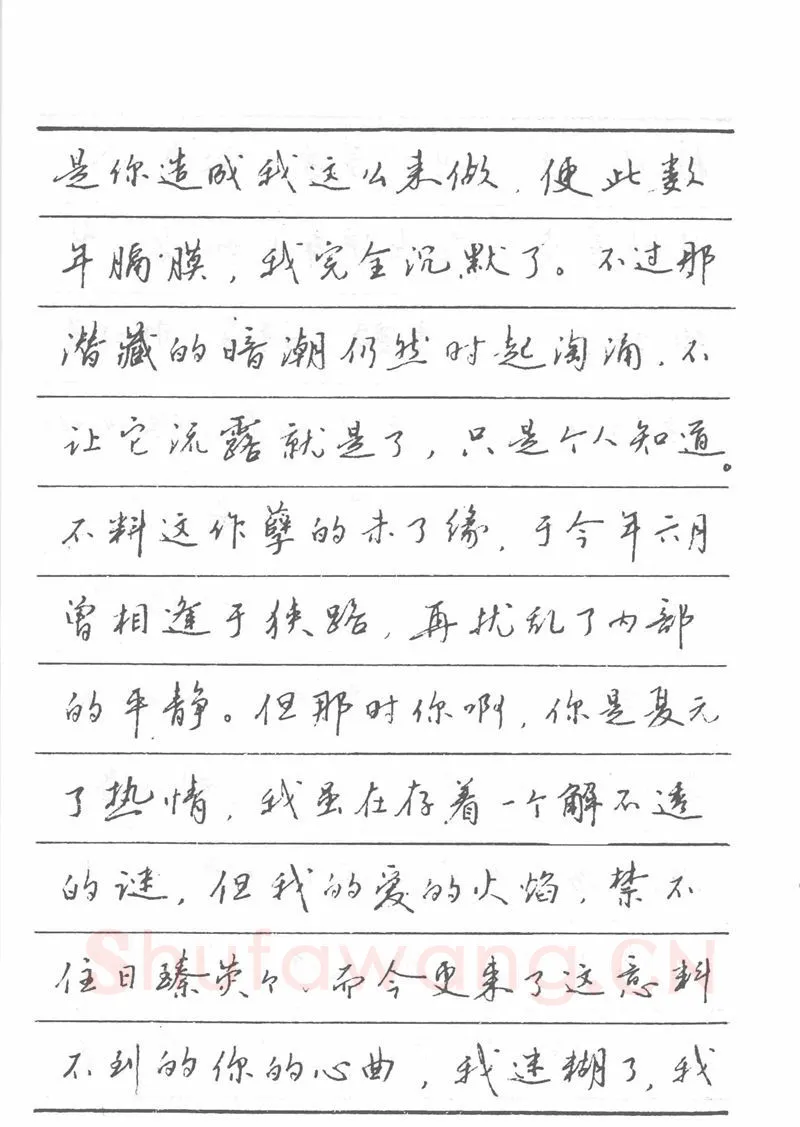 是你造成我这么来做，使此数
年膈膜，我完全沉默了。不过那
潜藏的暗潮仍然时起淘涌，不
让它流露就是了，只是个人知道。
不料这作孽的未了缘，于今年六月
曾相逢于狭路，再扰乱了内部
的平静。但那时你啊，你是复元
了热情，我虽在存着一个解不透
的谜，但我的爱的火焰，禁不
住日臻炎个，而今更来了这意料
不到的你的心曲，我迷糊了，我
Shufawang.CN